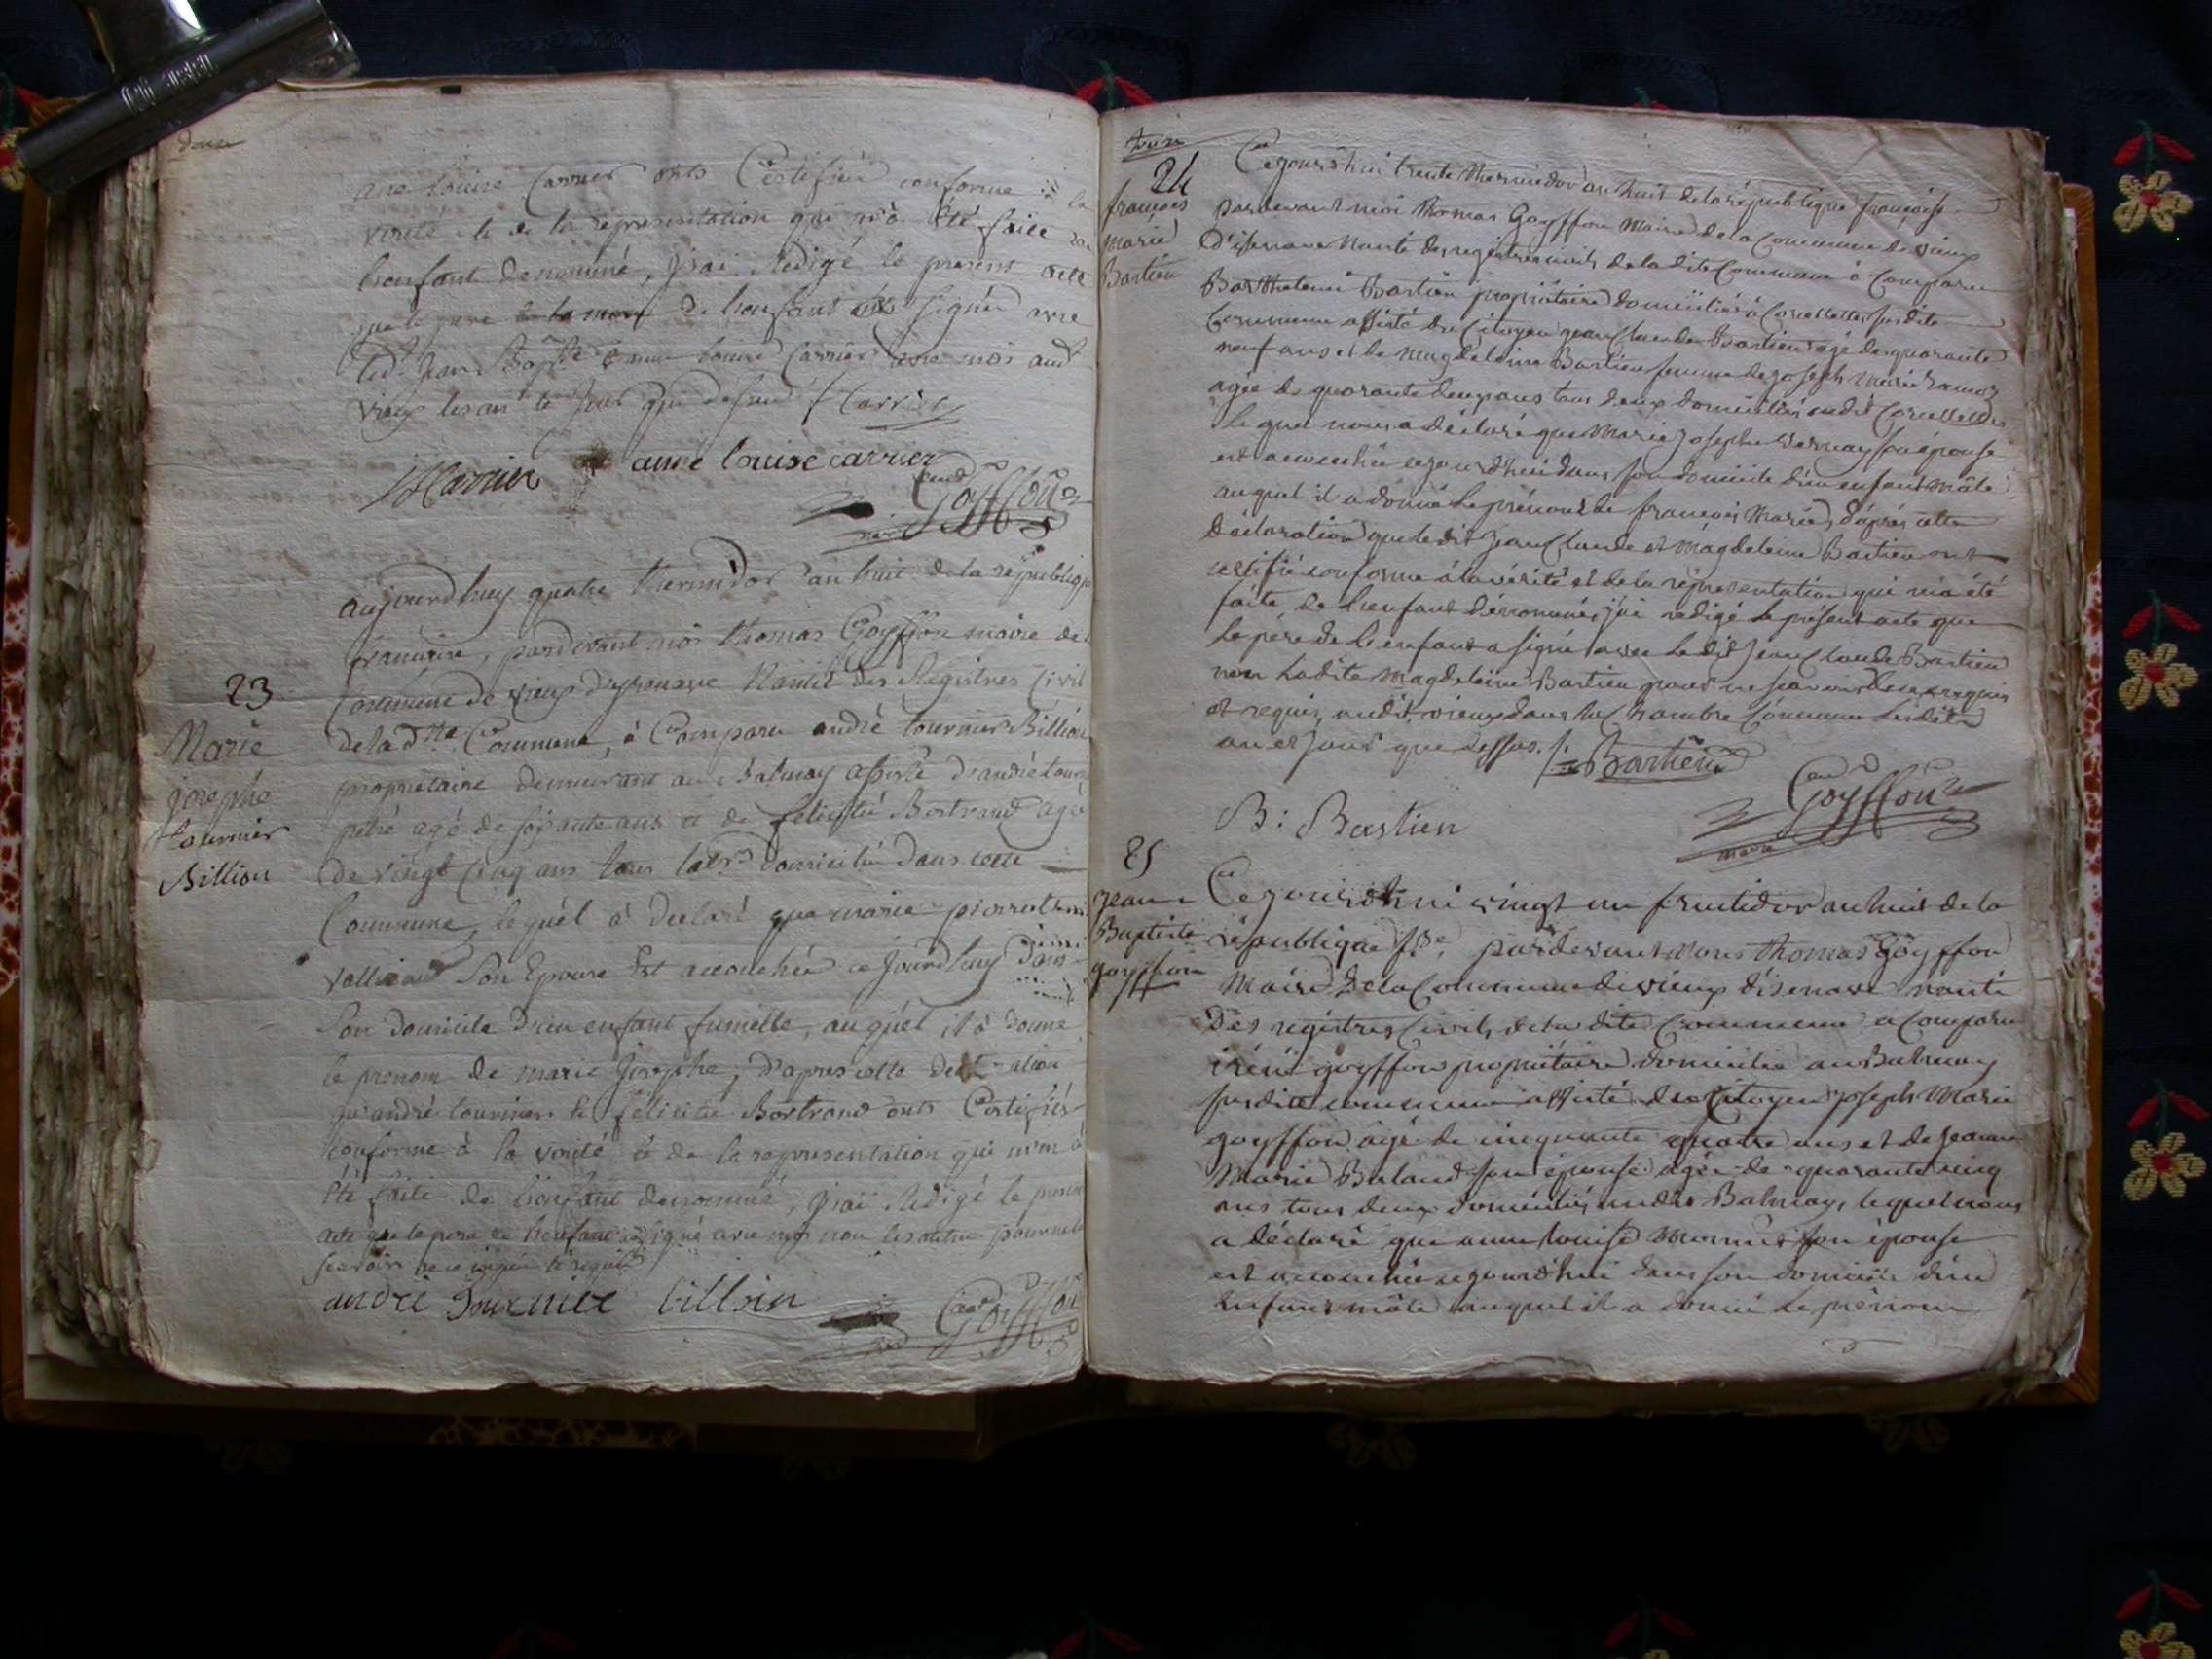 douze
ane Louise Carrier onts Certifiéz conforme à la
verité et de la représentation qui m'à Eté faite de
l'enfant denommé, j'rai Redigé le present acte
que le pere et la mere de l'enfant signée avec
led. Jean Bapte anne Louise Carrier avec moi aud
vieux les an et jour que dessus / Carrier
Carrier anne louise carrier
Goyffon
maire
aujourdhuy quatre thermidor an huit de la republique
francaise, pardevant moi thomas Goyffon maire de la
23
Commune de vieux d'ysenave Nantit des Régistres Civil
Marie
josephe
tournier
Billion
de la dite Commune, à Comparu andré tournier Billion
propriétaire demeurant au Balmay assisté d'andré tournier
agé de soixante ans et de felicité Bertrand agé
de vingt Cinq ans tous domicilié dans cette
Commune, lequel à declaré que marie pierrette
vallier Son Epouse Est accouchée ce jourdhuy dans
Son domicile d'un enfant fumelle, auquel il à donné
le prenom de marie josephe, d'apres cette declaration
qu'andré tournier et felicité Bertrand onts Certifiés
conforme à la verité et de la representation qui m'en à
Eté faite de l'enfant denommé, j'rai Redigé le present
acte que le pere de l'enfant a signé avec moi non les autres pour ne le
scavoir de ce enquis et requis /
andré Tournier billion
Goyffon
treize
24
françois
Marie
Bastien
Cejourd'hui trente thermidor an huit de la république française
pardevant moi thomas Goyffon Maire de la Commune de vieux
d'isenave Nanti des registres civils de la dite Commune à comparu
Barthelemi Bastien propriétaire domicilié à Corcelette susdite
Commune assisté du Citoyen jean Claude Bastien agé de quarante
neuf ans et de Magdeleine Bastien femme de joseph Marie
agée de quarante deux ans tous deux domiciliés audit Corcelette
Lequel nous a déclaré que Marie josephe vernay son épouse
est accouchée cejourd'hui dans son domicile d'un enfant mâle
auquel il a donné le prénom de françois Marie, d'après cette
déclaration que ledit jean Claude et Magdeleine Bastien ont
certifié conforme à la vérité et de la répresentation qui m'a été
faite de l'enfant dénommé, j'ai redigé le présent acte que
le père de l'enfant a signé avec ledit jean Claude Bastien
non Ladite Magdeleine Bastien pour ne scavoir de ce enquis
et requis, audit vieux dans la Chambre Commune lesdits
an et jour que dessus. /. Bastien
B: Bastien
Goyffon
maire
25
jean
Baptiste
goyffon
Cejourd'hui vingt un fructidor an huit de la
république fse, pardevant nous thomas Goyffon
Maire de la Commune de vieux d'isenave nanti
Des régistres Civils de la dite Commune a comparu
iréné goyffon propriétaire domicilié au Balmay
susdite commune assisté du Citoyen joseph Marie
goyffon âgé de cinquante quatre ans et de jeanne
Marie Baland son épouse agée de quarante cinq
ans tous deux domiciliés audit Balmay, lequel nous
a déclaré que anne Louise son épouse
est accouchée cejourd'hui dans son domicile d'un
enfant mâle auquel il a donné le prénom